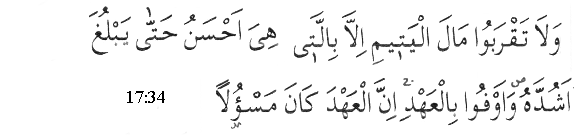 وَلَا تَقْرَبُوا مَالَ الْيَتِيمِ اِلَّا بِالَّتٖى هِىَ اَحْسَنُ حَتّٰى يَبْلُغَ
اَشُدَّهُ ۖ وَاَوْفُوا بِالْعَهْدِ ۚ اِنَّ الْعَهْدَ كَانَ مَسْؤُلًا 17:34